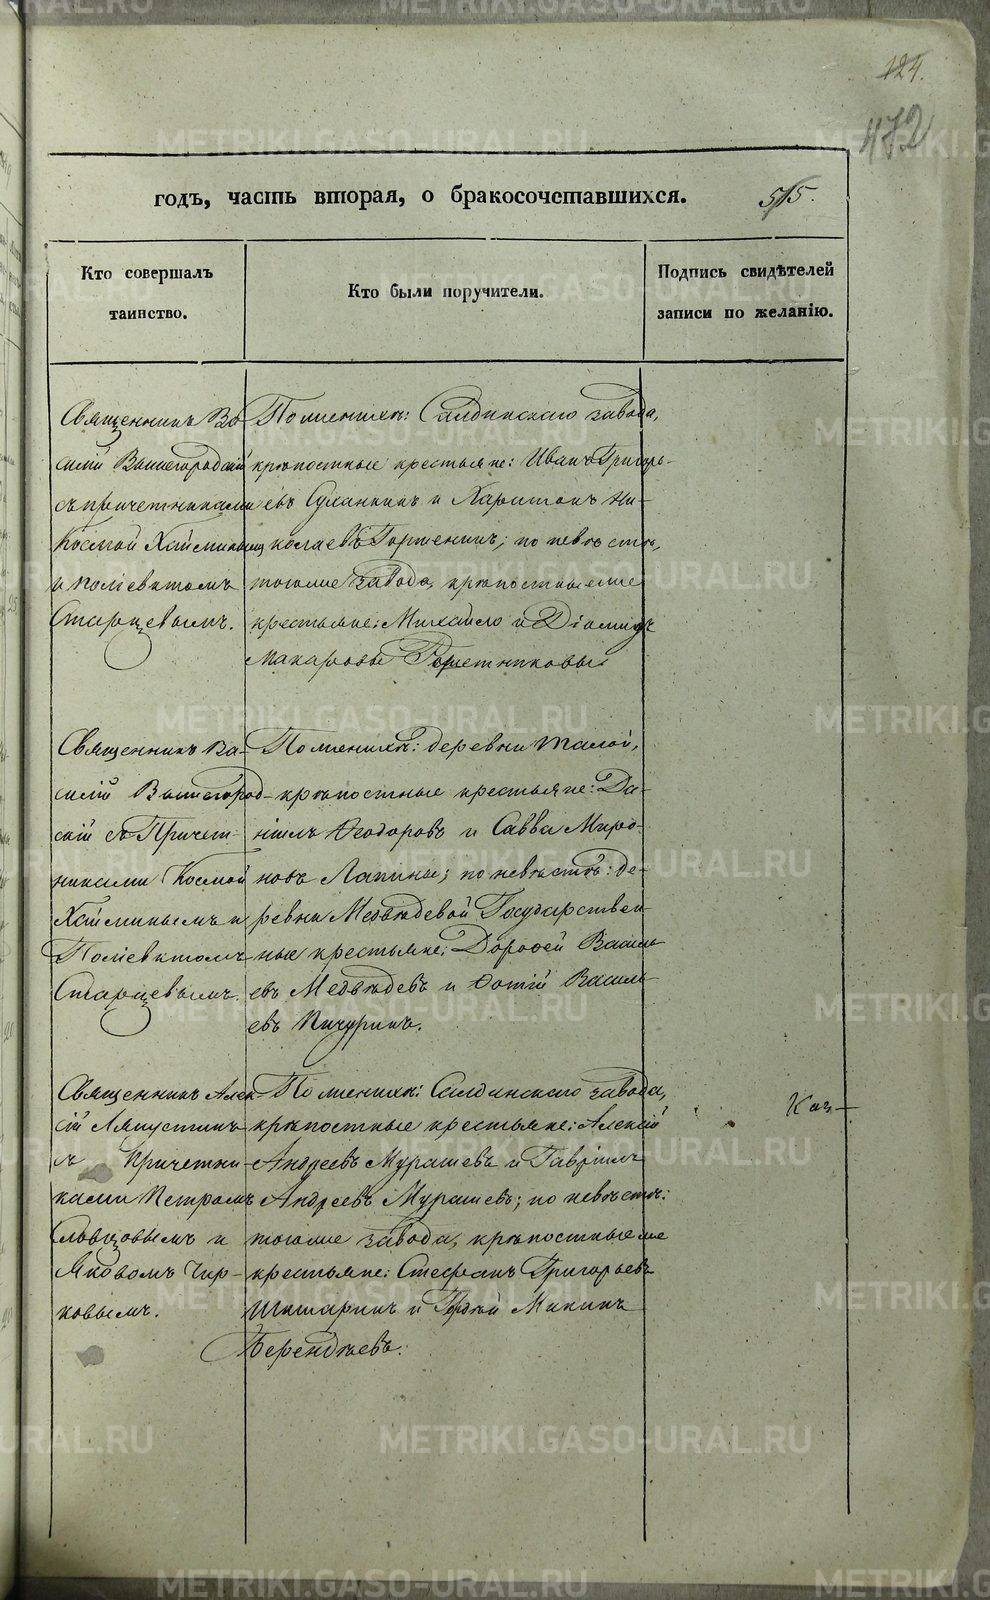 124.
472
годъ, часть вторая, о бракосочетавшихся. 515.
Кто совершалъ
таинство.
Кто были поручители.
Подпись свидѣтелей
записи по желанію.
Священникъ Ва-
силій Вышегородскій
съ причетниками
Космой Хайминымъ
и Поліевктомъ
Старцевымъ.
По женихѣ: Салдинскаго завода,
крѣпостные крестьяне: Иванъ Григорь-
евъ и Харитонъ Ни-
колаевъ; по невѣстѣ,
тогоже завода, крѣпостныеже
крестьяне: Михайло и Діомидъ
Макаровы Решетниковы.
Священникъ Ва-
силій Вышегород-
скій съ Причет-
никами Космой
Хайминымъ и
Поліевктомъ
Старцевымъ.
По женихѣ: деревни Малой,
крѣпостные крестьяне: Да-
ніилъ Ѳеодоровъ и Савва Миро-
новъ Лапины; по невѣстѣ: де-
ревни Медвѣдевой Государствен-
ные крестьяне: Дороѳей Василь-
евъ Медвѣдевъ и Ѳотій Василь-
евъ Пичугинъ.
Священникъ Алек-
сій Ляпустинъ
съ Причетни-
ками Петромъ
Словцовымъ и
Яковомъ Чир-
ковымъ.
По женихѣ: Салдинскаго завода,
крѣпостные крестьяне: Алексій
Андреевъ Мурашевъ и Гавріилъ
Андреевъ Мурашевъ; по невѣстѣ:
тогоже завода, крѣпостныеже
крестьяне: Стефанъ Григорьевъ
Шатаринъ и Гордѣй Микинъ
Берендѣевъ.
METRIKI.GASO-URAL.RU